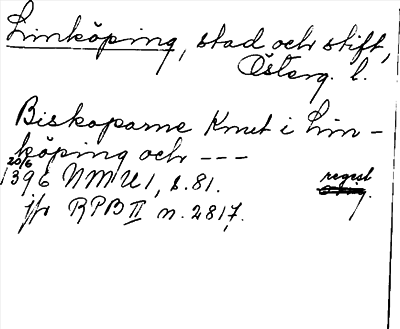 Linköping, stad och stift,
Österg. l.
Biskoparne Knut i Lin-
köping och ---
20/6
1396 NMU 1, s. 81. regest
jfr RPB II n. 2817.